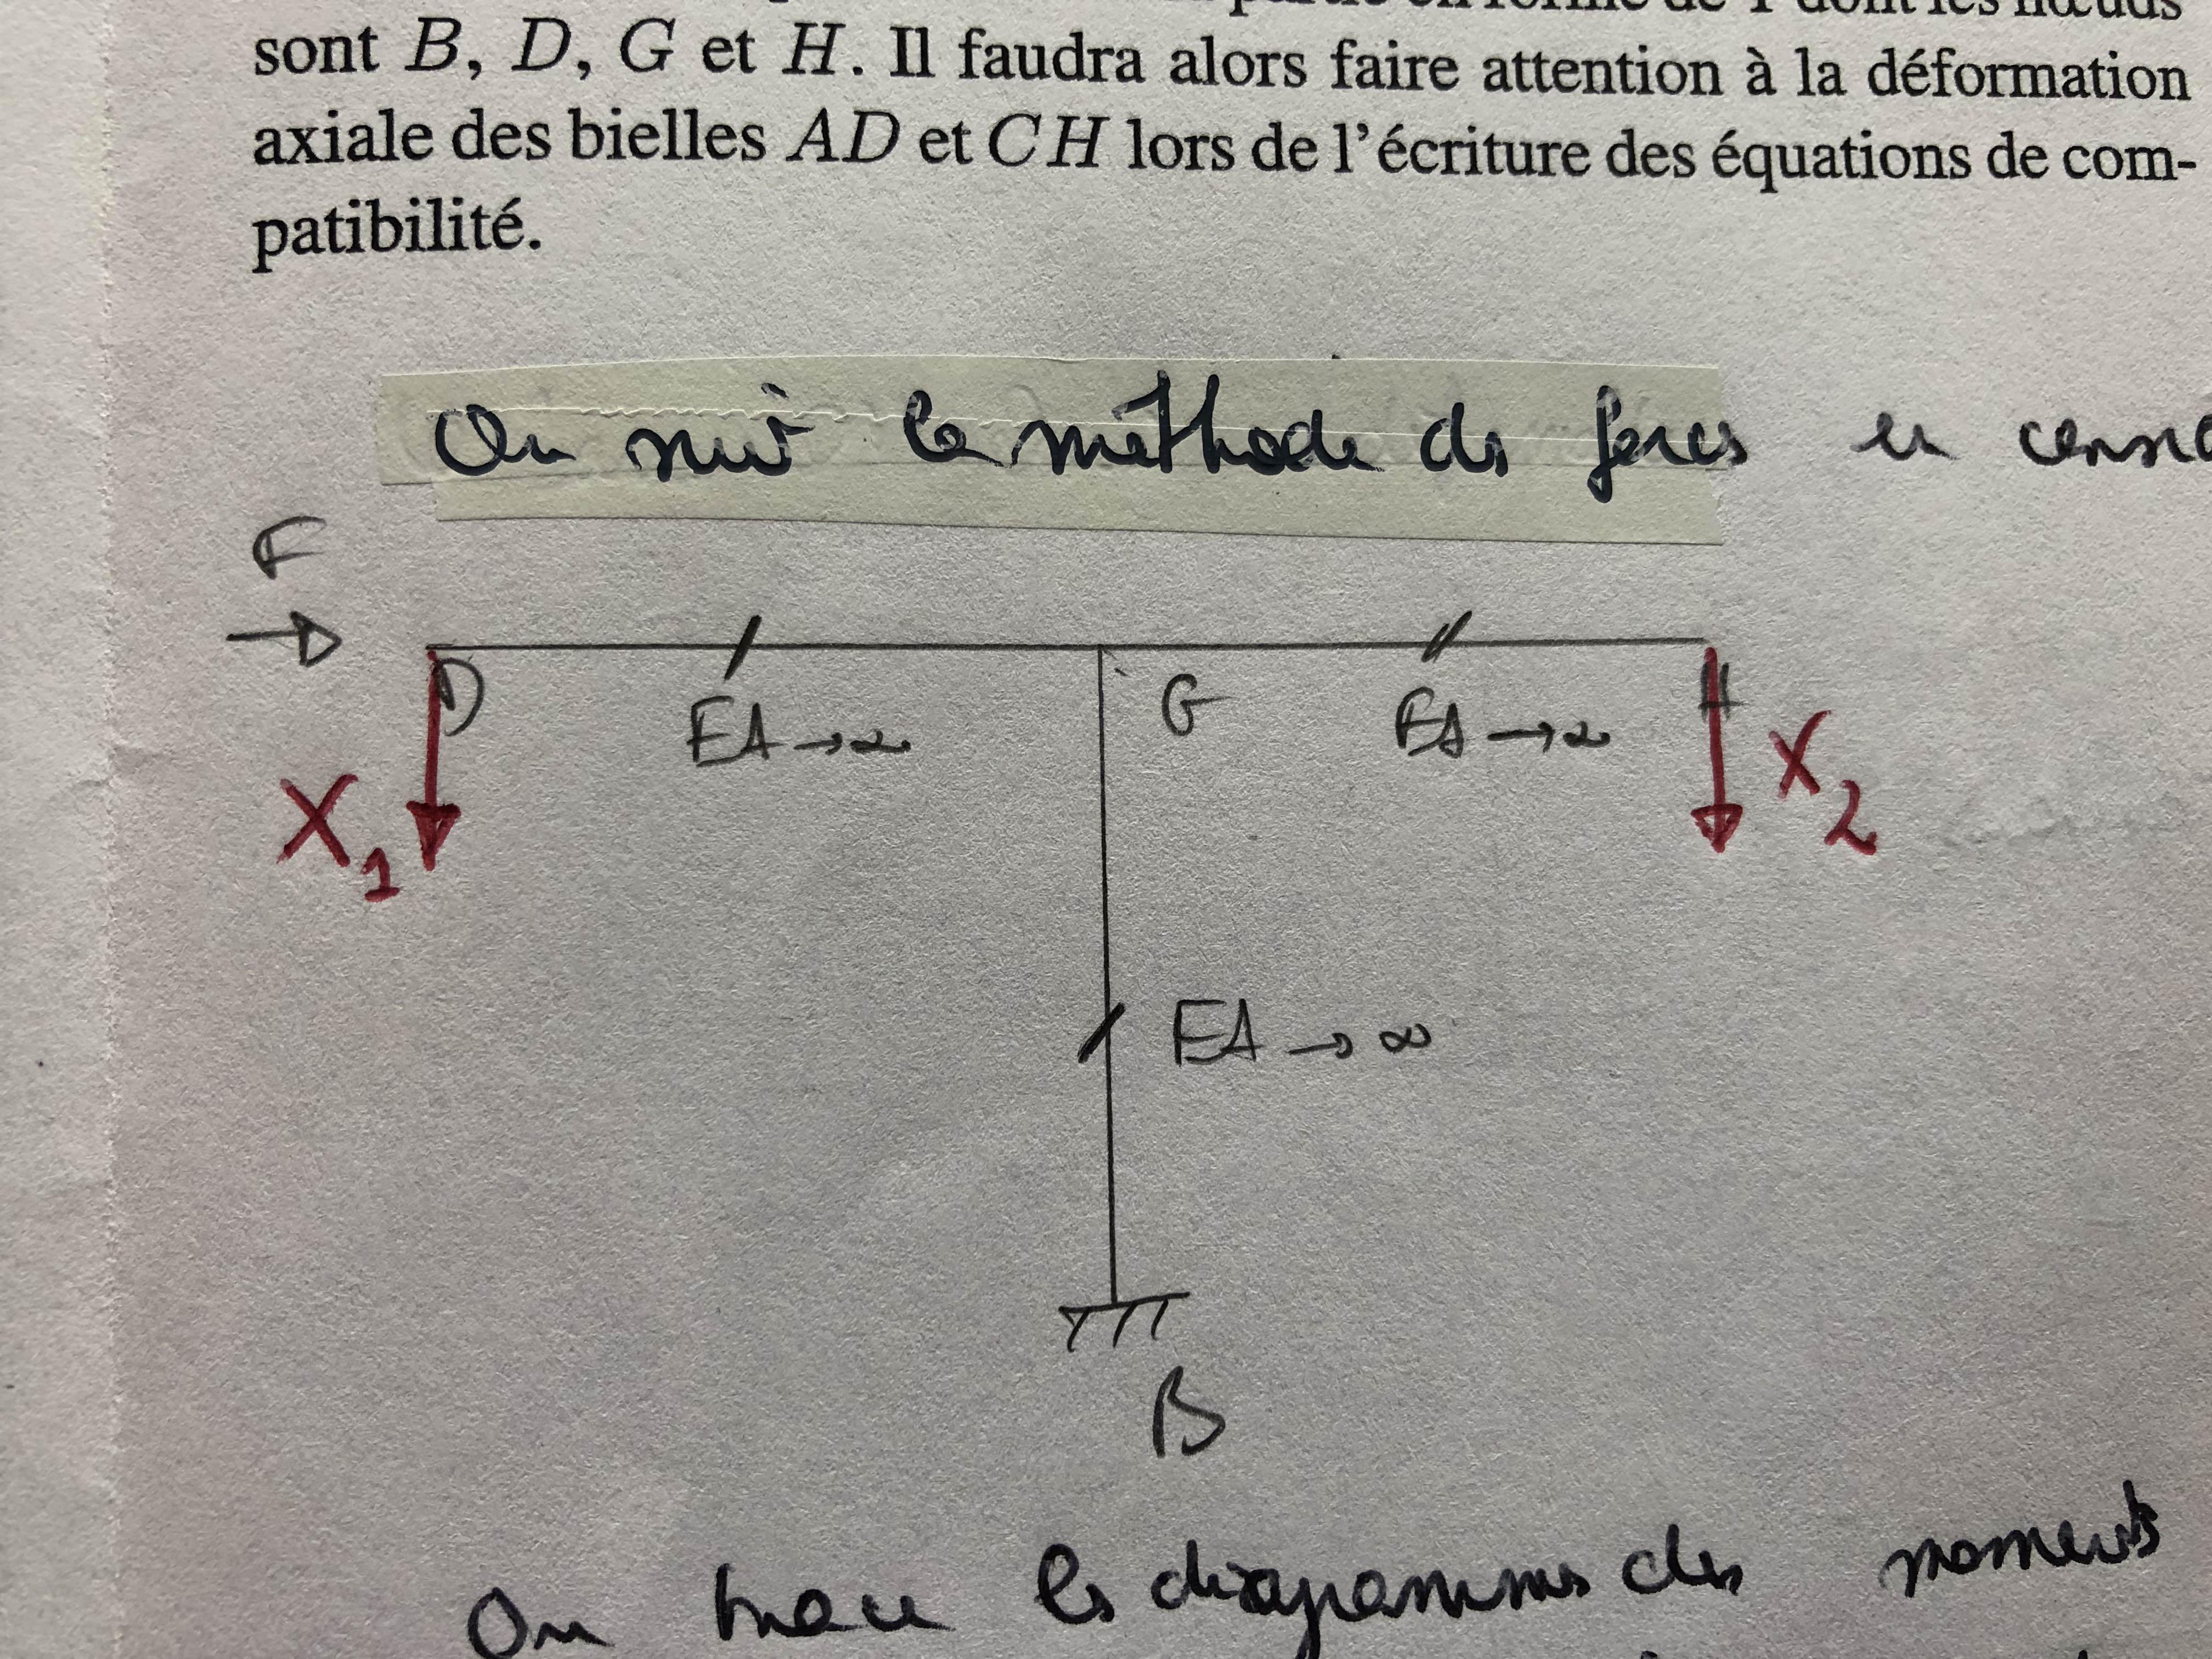 partie en forme de T dont les nœuds
sont B, D, G et H. Il faudra alors faire attention à la déformation
axiale des bielles AD et CH lors de l'écriture des équations de com-
patibilité.
On suit la méthode des forces en
F
D
G
H
EA → ∞
EA → ∞
X1
X2
EA → ∞
B
On trace les diagrammes des moments